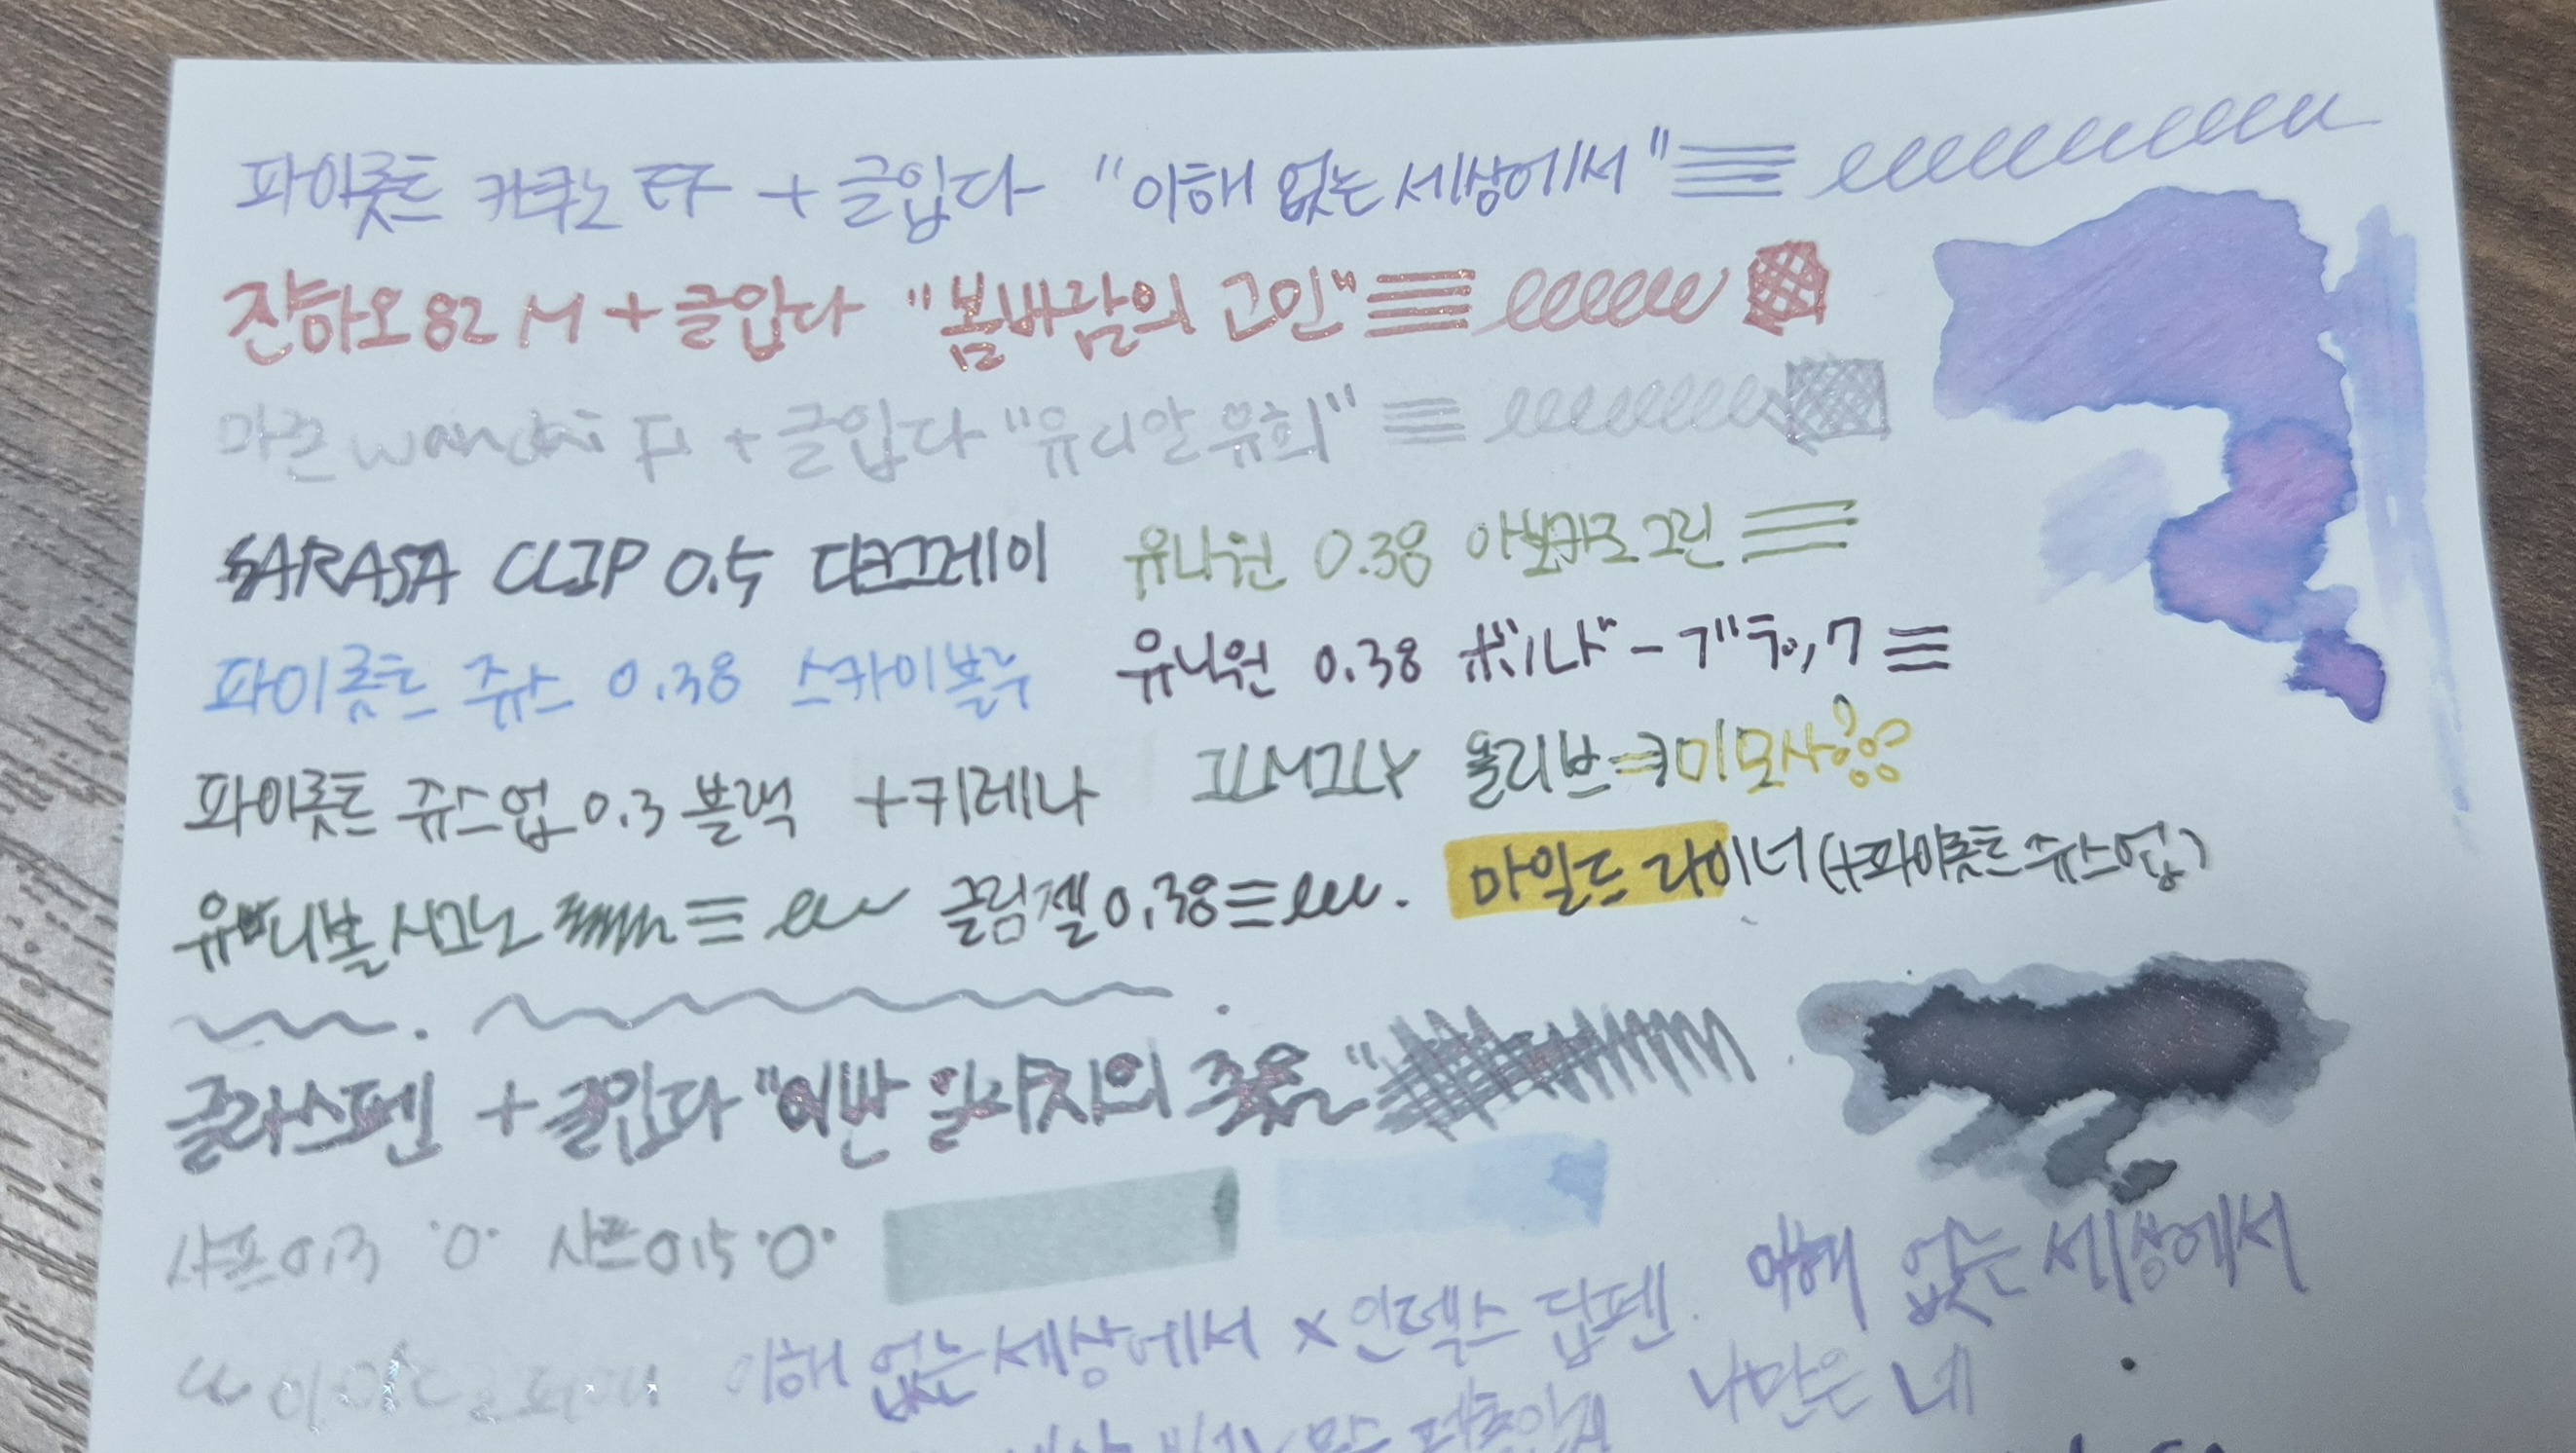 파이롯트 카쿠노 EF + 글입다 "이해 없는 세상에서"
진하오 82 M + 글입다 "봄바람의 고민"
마존 wancai F + 글입다 "유리알 유희"
SARASA CLIP 0.5 다크그레이
유니원 0.38 아보카도 그린
파이롯트 쥬스 0.38 스카이블루
유니원 0.38 ボルドーブラック
파이롯트 쥬스업 0.3 블랙 +키레나
ILMILY 올리브→미모사
유니볼 시그노
글림젤 0.38
마일드라이너(+파이롯트 쥬스업)
글라스펜 + 글입다 "이반 일리치의 죽음"
샤프 0.3 샤프 0.5
이해 없는 세상에서 x 인덱스 딥펜.
이해 없는 세상에서
나만은 네